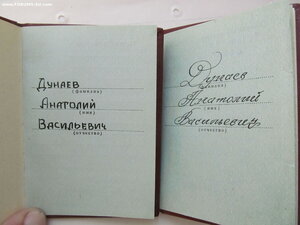 www.FORUMS-su.com
Дунаев
(фамилия)
Анатолий
(имя)
Васильевич
(отчество)
Дунаев
(фамилия)
Анатолий
(имя)
Васильевич
(отчество)